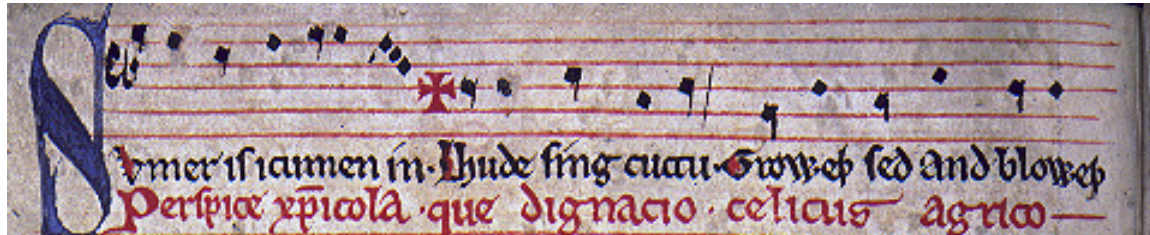 Svmer is icumen in·Lhude sing cuccu·Groweþ sed and bloweþ
Perspice xp̄icola·que dignacio·celicus agrico—